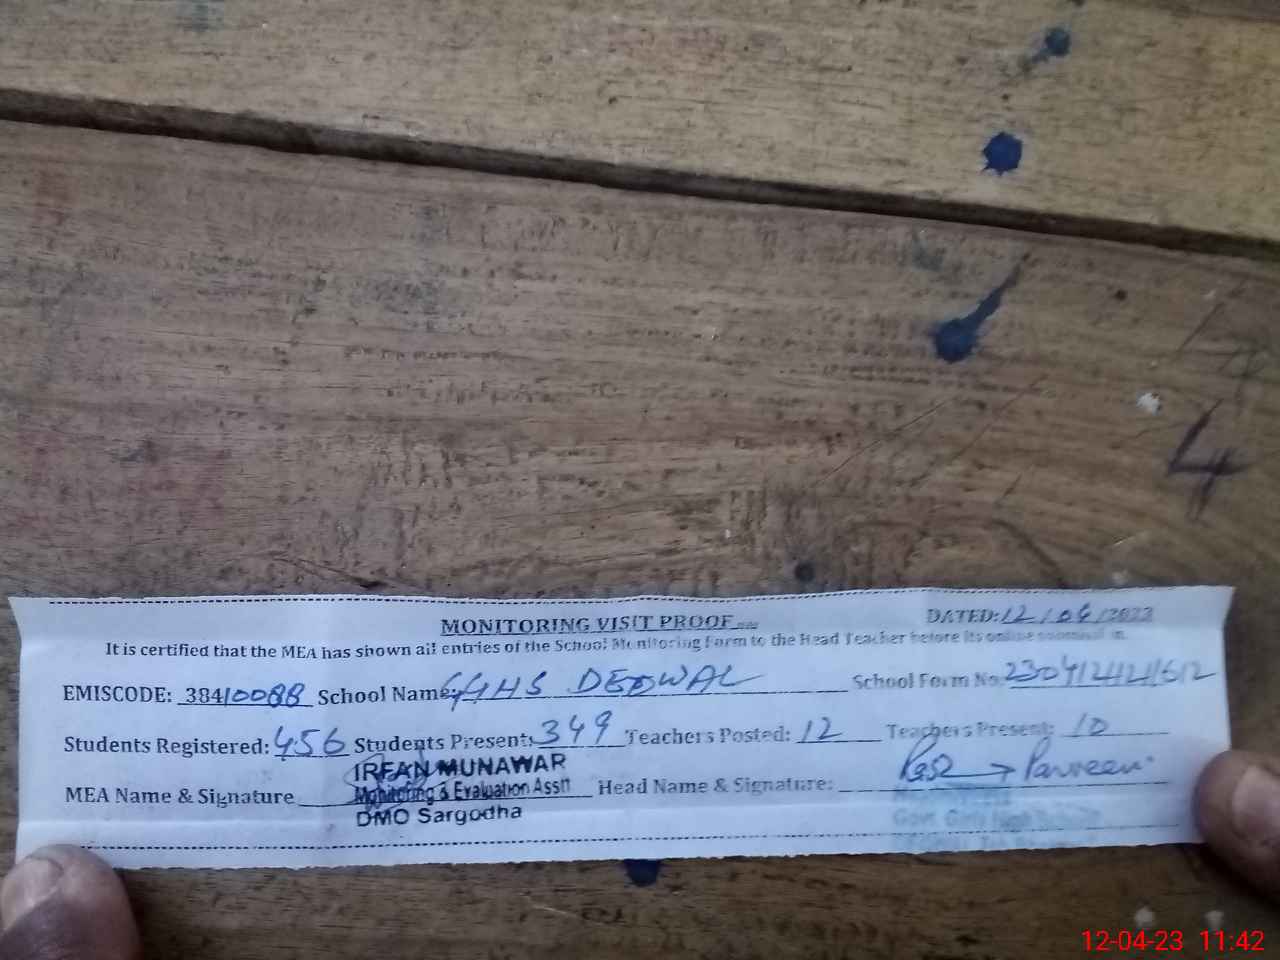 4
MONITORING VISIT PROOF
DATED: 12/04/2023
It is certified that the MEA has shown all entries of the School Monitoring Form to the Head Teacher before its online submission in.
EMISCODE: 38410088 School Name: GGHS DEOWAL School Form No.
Students Registered: 456 Students Present: 349 Teachers Posted: 12 Teachers Present: 10
MEA Name & Signature IRFAN MUNAWAR Head Name & Signature: Parveen
Monitoring & Evaluation Asstt
DMO Sargodha
Govt. Girls High School
12-04-23 11:42